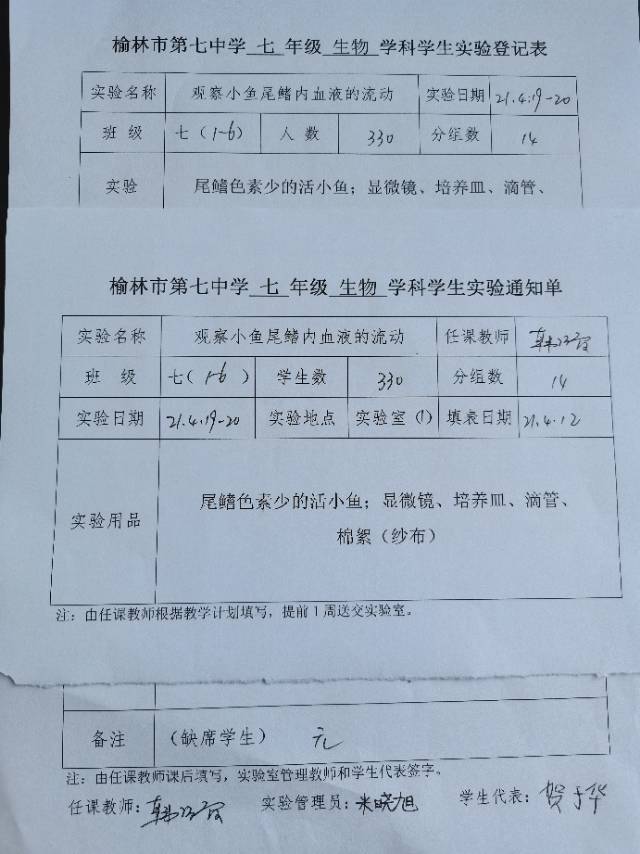 榆林市第七中学 七 年级 生物 学科学生实验登记表
实验名称 观察小鱼尾鳍内血液的流动 实验日期 21.4.19-20
班 级 七(1-6) 人 数 330 分组数 14
实验 尾鳍色素少的活小鱼；显微镜、培养皿、滴管、
榆林市第七中学 七 年级 生物 学科学生实验通知单
实验名称 观察小鱼尾鳍内血液的流动 任课教师
班 级 七(1-6) 学生数 330 分组数 14
实验日期 21.4.19-20 实验地点 实验室(1) 填表日期 21.4.12
实验用品 尾鳍色素少的活小鱼；显微镜、培养皿、滴管、
棉絮（纱布）
注：由任课教师根据教学计划填写，提前1周送交实验室。
备注 （缺席学生） 元
注：由任课教师课后填写，实验室管理教师和学生代表签字。
任课教师： 实验管理员：米晓旭 学生代表：